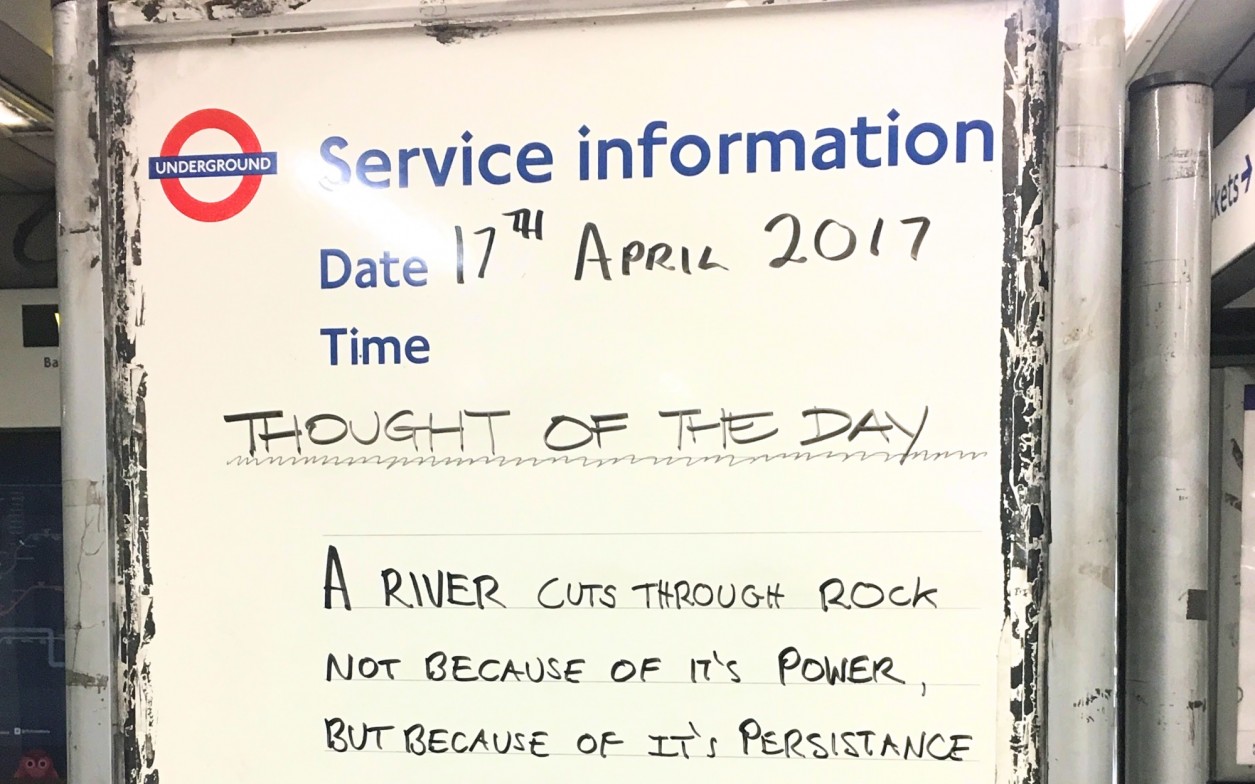 UNDERGROUND
Service information
Date 17TH APRIL 2017
Time
THOUGHT OF THE DAY
A RIVER CUTS THROUGH ROCK
NOT BECAUSE OF IT'S POWER,
BUT BECAUSE OF IT'S PERSISTANCE
kets→
Ba